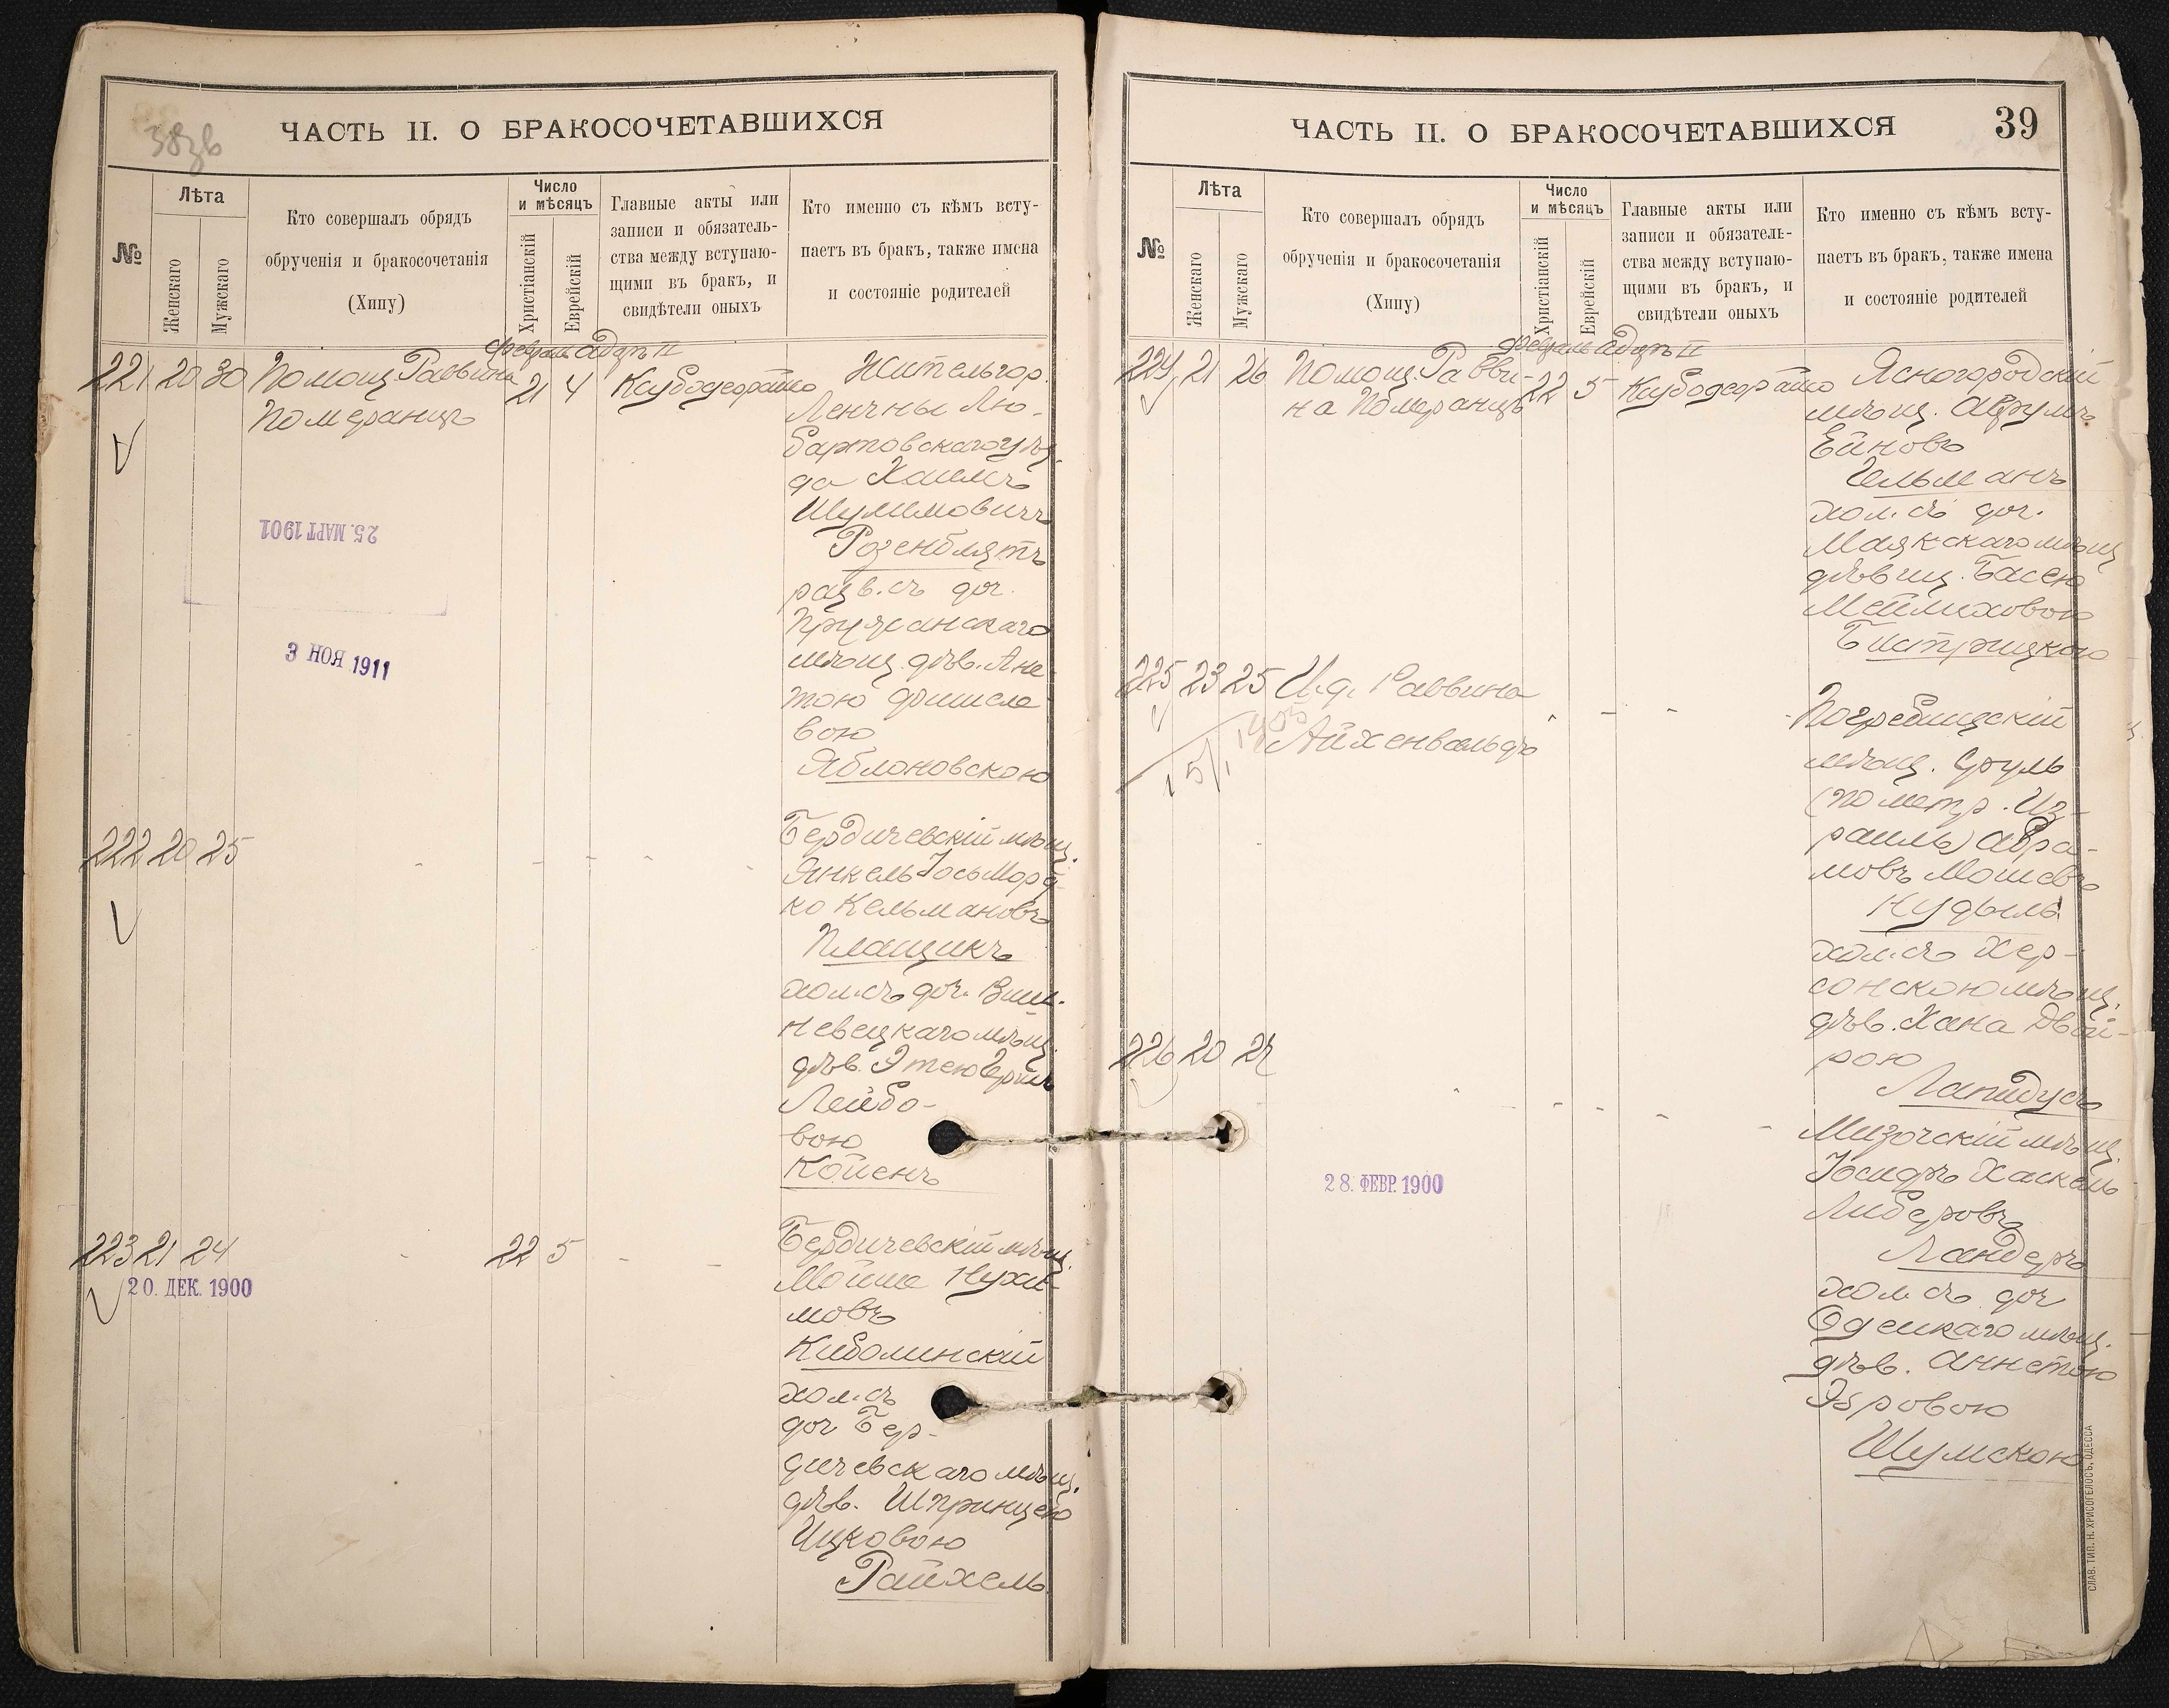 38зв
ЧАСТЬ II. О БРАКОСОЧЕТАВШИХСЯ
№
Лѣта
Женскаго
Мужскаго
Кто совершалъ обрядъ
обрученія и бракосочетанія
(Хипу)
Число
и мѣсяцъ
Христіанскій
Еврейскій
Главные акты или
записи и обязатель-
ства между вступаю-
щими въ бракъ, и
свидѣтели оныхъ
Кто именно съ кѣмъ всту-
паетъ въ бракъ, также имена
и состояніе родителей
Февраль Адаръ II
221 20 30 Помощ Раввина 21 4
Померанцъ
Житель гор.
Ленчны Лю-
бартовскаго уѣз-
да Хаимъ
Шулимовичъ
Розенблятъ
разв. съ доч.
Пружанскаго
мѣщ. дѣв. Ане-
тою Фишеле-
вою
Яблоновскою
25. МАРТ 1901
3 НОЯ 1911
222 20 25
Бердичевскій мѣщ.
Янкель Іось Морд-
ко Кельмановъ
Плащикъ
хол. съ доч. Виш-
невецкаго мѣщ.
дѣв. Этею
Лейбо-
вою
Койенъ
223 21 24 22 5
20. ДЕК. 1900
Бердичевскій мѣщ.
Мойше Нухи-
мовъ
Киволинскій
хол. съ
доч Бер-
дичевскаго мѣщ.
дѣв. Шпринцею
Ицковою
Райхель
ЧАСТЬ II. О БРАКОСОЧЕТАВШИХСЯ
39
№
Лѣта
Женскаго
Мужскаго
Кто совершалъ обрядъ
обрученія и бракосочетанія
(Хипу)
Число
и мѣсяцъ
Христіанскій
Еврейскій
Главные акты или
записи и обязатель-
ства между вступаю-
щими въ бракъ, и
свидѣтели оныхъ
Кто именно съ кѣмъ всту-
паетъ въ бракъ, также имена
и состояніе родителей
Февраль Адаръ II
224 21 26 Помощ. Равви- 22 5
на Померанцъ
Ясногородскій
мѣщ. Аврумъ
Ейновъ
Гельманъ
хол. съ доч.
Маякскаго мѣщ
дѣвиц. Басею
Мейлиховою
Бистрицкою
225 23 25 И. д. Раввина
Айхенвальдъ
Погребищскій
мѣщ. Сруль
(по метр. Из-
раиль) Авра-
мовъ Мошевъ
Нудыль
хол. съ Хер-
сонскою мѣщ.
дѣв. Хана Двой-
рою
Лапидусъ
226 20 24
28. ФЕВР. 1900
Мизочскій мѣщ.
Іосифъ Хаскель
Либеровъ
Ландеръ
хол. съ доч
Одесскаго мѣщ.
дѣв. Аннетою
Эзровою
Шумскою
СЛАВ. ТИП. Н. ХРИСОГЕЛОСЪ, ОДЕССА